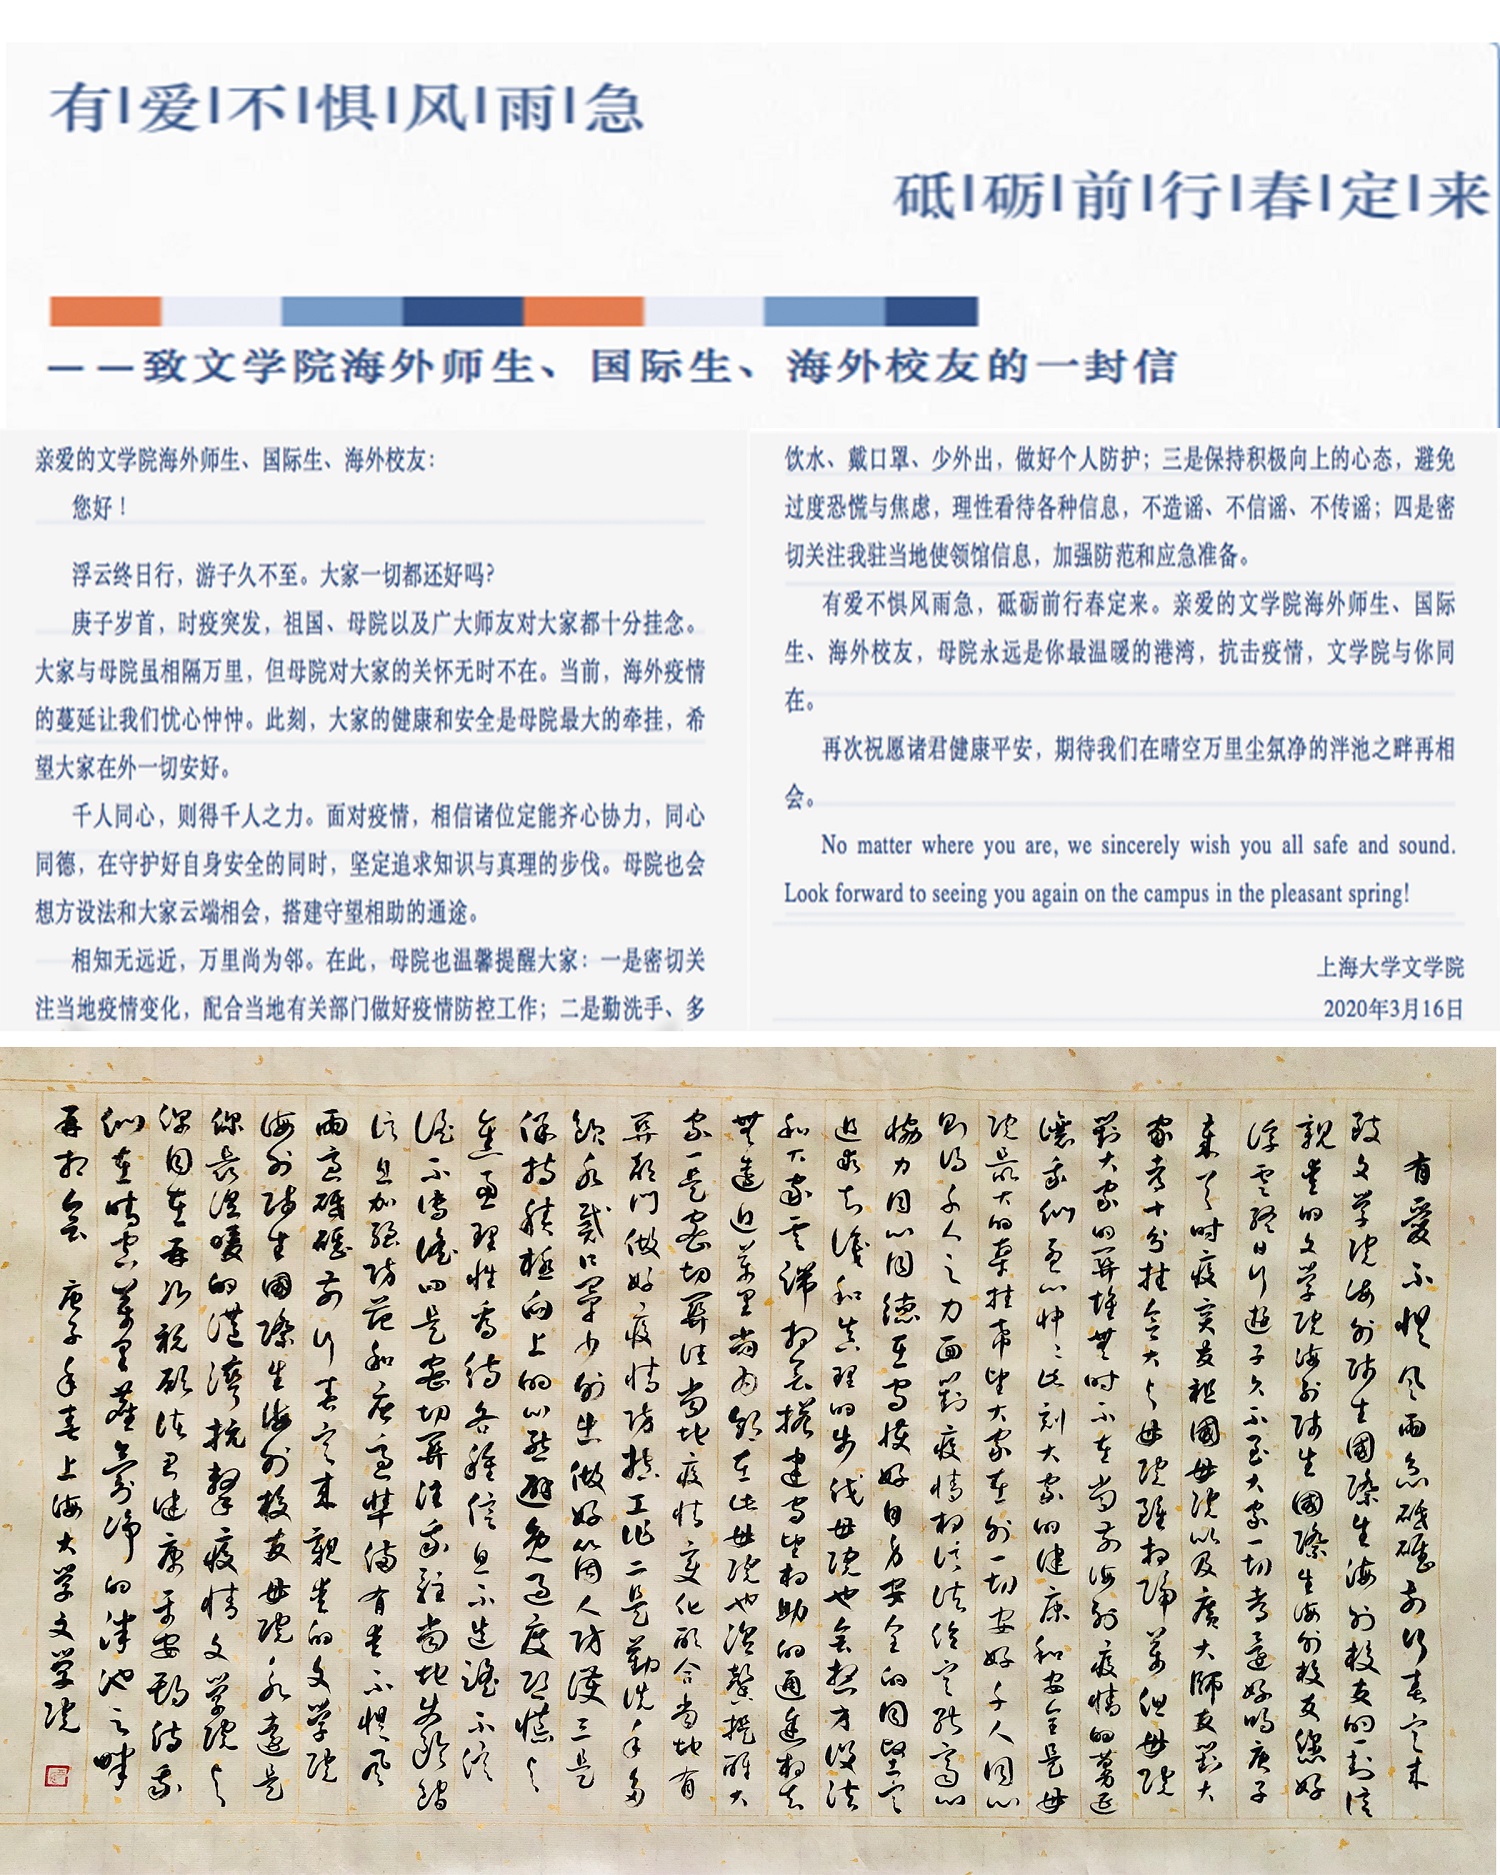 有|爱|不|惧|风|雨|急
砥|砺|前|行|春|定|来
——致文学院海外师生、国际生、海外校友的一封信
亲爱的文学院海外师生、国际生、海外校友：
您好！
浮云终日行，游子久不至。大家一切都还好吗？
庚子岁首，时疫突发，祖国、母院以及广大师友对大家都十分挂念。
大家与母院虽相隔万里，但母院对大家的关怀无时不在。当前，海外疫情
的蔓延让我们忧心忡忡。此刻，大家的健康和安全是母院最大的牵挂，希
望大家在外一切安好。
千人同心，则得千人之力。面对疫情，相信诸位定能齐心协力，同心
同德，在守护好自身安全的同时，坚定追求知识与真理的步伐。母院也会
想方设法和大家云端相会，搭建守望相助的通途。
相知无远近，万里尚为邻。在此，母院也温馨提醒大家：一是密切关
注当地疫情变化，配合当地有关部门做好疫情防控工作；二是勤洗手、多
饮水、戴口罩、少外出，做好个人防护；三是保持积极向上的心态，避免
过度恐慌与焦虑，理性看待各种信息，不造谣、不信谣、不传谣；四是密
切关注我驻当地使领馆信息，加强防范和应急准备。
有爱不惧风雨急，砥砺前行春定来。亲爱的文学院海外师生、国际
生、海外校友，母院永远是你最温暖的港湾，抗击疫情，文学院与你同
在。
再次祝愿诸君健康平安，期待我们在晴空万里尘氛净的泮池之畔再相
会。
No matter where you are, we sincerely wish you all safe and sound.
Look forward to seeing you again on the campus in the pleasant spring!
上海大学文学院
2020年3月16日
有愛不懼風雨急砥礪前行春定来
致文学院海外师生國際生海外校友的一封信
親愛的文学院海外师生國際生海外校友您好
浮雲終日行遊子久不至大家一切都還好嗎庚子
歲首時疫突發祖國母院以及廣大師友對大
家都十分挂念大家与母院雖相隔萬里但母院
對大家的關懷無時不在當前海外疫情的蔓延
讓我们憂心忡忡此刻大家的健康和安全是母
院最大的牽挂希望大家在外一切安好千人同心
則得千人之力面對疫情相信諸位定能齊心
協力同心同德在守護好自身安全的同時堅定
追求知識和真理的步伐母院也會想方設法
和大家雲端相會搭建守望相助的通途相知
無遠近萬里尚為鄰在此母院也温馨提醒大
家一是密切關注當地疫情變化配合當地有
關部門做好疫情防控工作二是勤洗手多
飲水戴口罩少外出做好個人防護三是
保持積極向上的心態避免過度恐慌与
焦慮理性看待各種信息不造謠不信
謠不傳謠四是密切關注我駐當地使領館
信息加強防范和應急準備有愛不懼風
雨急砥礪前行春定来親愛的文学院
海外师生國際生海外校友母院永遠是
你最温暖的港灣抗擊疫情文学院与
你同在再次祝願諸君健康平安期待我
们在晴空萬里塵氛净的泮池之畔
再相會 庚子年春上海大学文学院